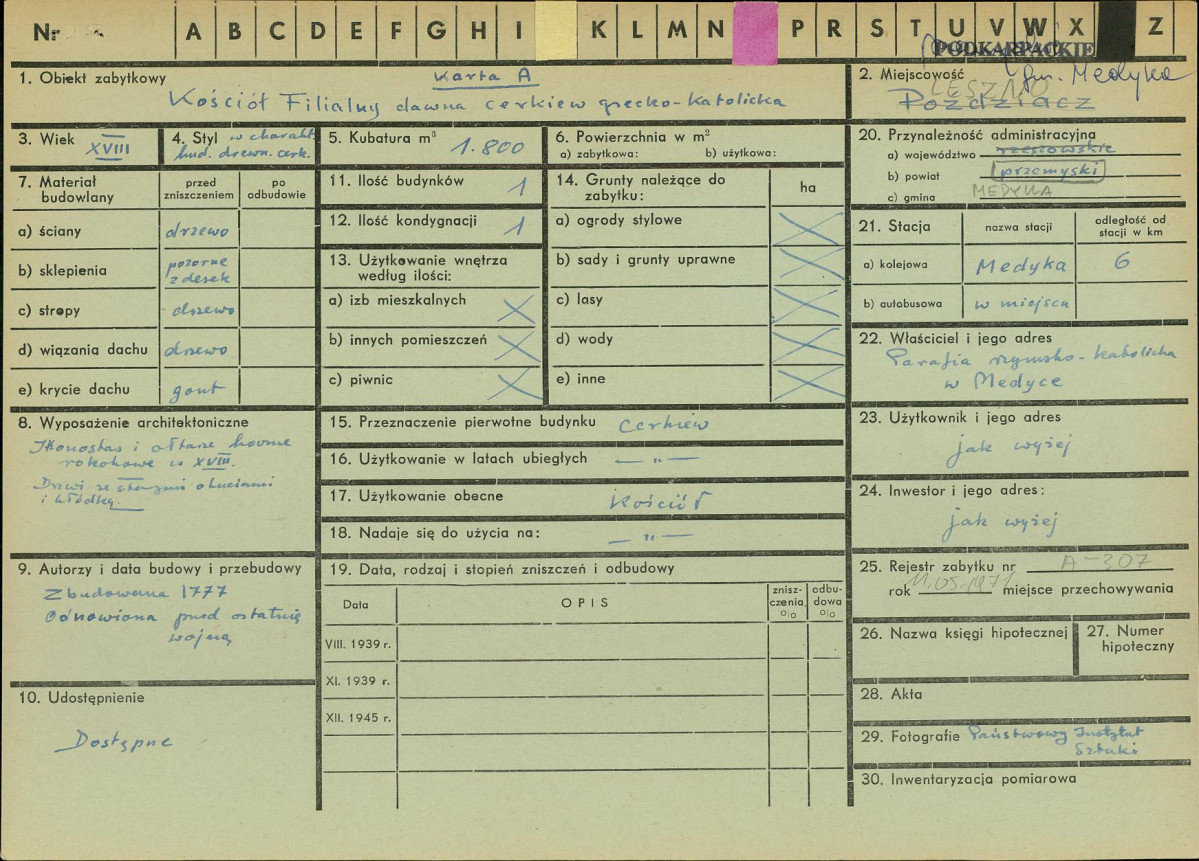 Nr
A B C D E F G H I K L M N P R S T U V W X Z
PODKARPACKIE
1. Obiekt zabytkowy
Karta A
Kościół Filialny dawna cerkiew grecko-katolicka
2. Miejscowość
gm. Medyka
LESZNO
Poździacz
3. Wiek
XVIII
4. Styl w charakt.
bud. drewn. cerk.
5. Kubatura m³
1.800
6. Powierzchnia w m²
a) zabytkowa: b) użytkowa:
7. Materiał budowlany
przed zniszczeniem
po odbudowie
a) ściany drzewo
b) sklepienia pozorne z desek
c) stropy drzewo
d) wiązania dachu drzewo
e) krycie dachu gont
8. Wyposażenie architektoniczne
Ikonostas i ołtarze boczne
rokokowe w XVIII.
Drzwi ze starymi okuciami
i kłódką
9. Autorzy i data budowy i przebudowy
Zbudowana 1777
Odnowiona przed ostatnią
wojną
10. Udostępnienie
Dostępne
11. Ilość budynków 1
12. Ilość kondygnacji 1
13. Użytkowanie wnętrza
według ilości:
a) izb mieszkalnych
b) innych pomieszczeń
c) piwnic
14. Grunty należące do
zabytku:
ha
a) ogrody stylowe
b) sady i grunty uprawne
c) lasy
d) wody
e) inne
15. Przeznaczenie pierwotne budynku cerkiew
16. Użytkowanie w latach ubiegłych — „ —
17. Użytkowanie obecne Kościół
18. Nadaje się do użycia na: — „ —
19. Data, rodzaj i stopień zniszczeń i odbudowy
Data
OPIS
znisz-
czenia
%
odbu-
dowa
%
VIII. 1939 r.
XI. 1939 r.
XII. 1945 r.
20. Przynależność administracyjna
a) województwo rzeszowskie
b) powiat przemyski
c) gmina MEDYKA
21. Stacja
nazwa stacji
odległość od
stacji w km
a) kolejowa Medyka 6
b) autobusowa w miejscu
22. Właściciel i jego adres
Parafia rzymsko-katolicka
w Medyce
23. Użytkownik i jego adres
jak wyżej
24. Inwestor i jego adres:
jak wyżej
25. Rejestr zabytku nr A-307
rok 11.05.1971 miejsce przechowywania
26. Nazwa księgi hipotecznej
27. Numer
hipoteczny
28. Akta
29. Fotografie Państwowy Instytut
Sztuki
30. Inwentaryzacja pomiarowa